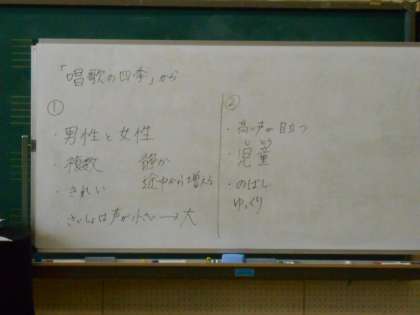 「唱歌の四季」から
①
・男性と女性
・複数 静か
途中から増える
・きれい
さいしょは声が小さい→大
②
・高い声が目立つ
じどう
・児童
・のばし
ゆっくり